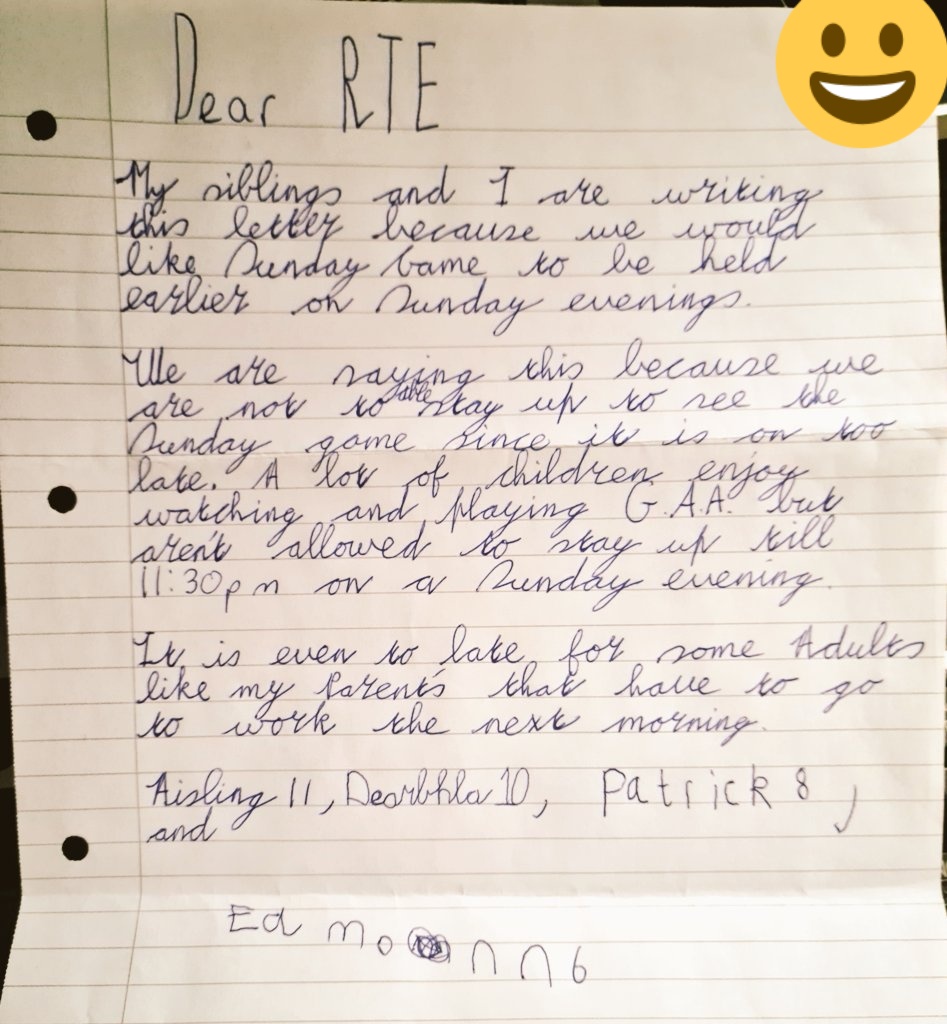 Dear RTE
My siblings and I are writing
this letter because we would
like Sunday Game to be held
earlier on Sunday evenings.
We are saying this because we
are not to able stay up to see the
Sunday game since it is on too
late. A lot of children enjoy
watching and playing G.A.A. but
aren't allowed to stay up till
11:30pm on a Sunday evening.
It is even to late for some Adults
like my Parent's that have to go
to work the next morning.
Aisling 11, Dearbhla 10, Patrick 8,
and
Edmonn 6